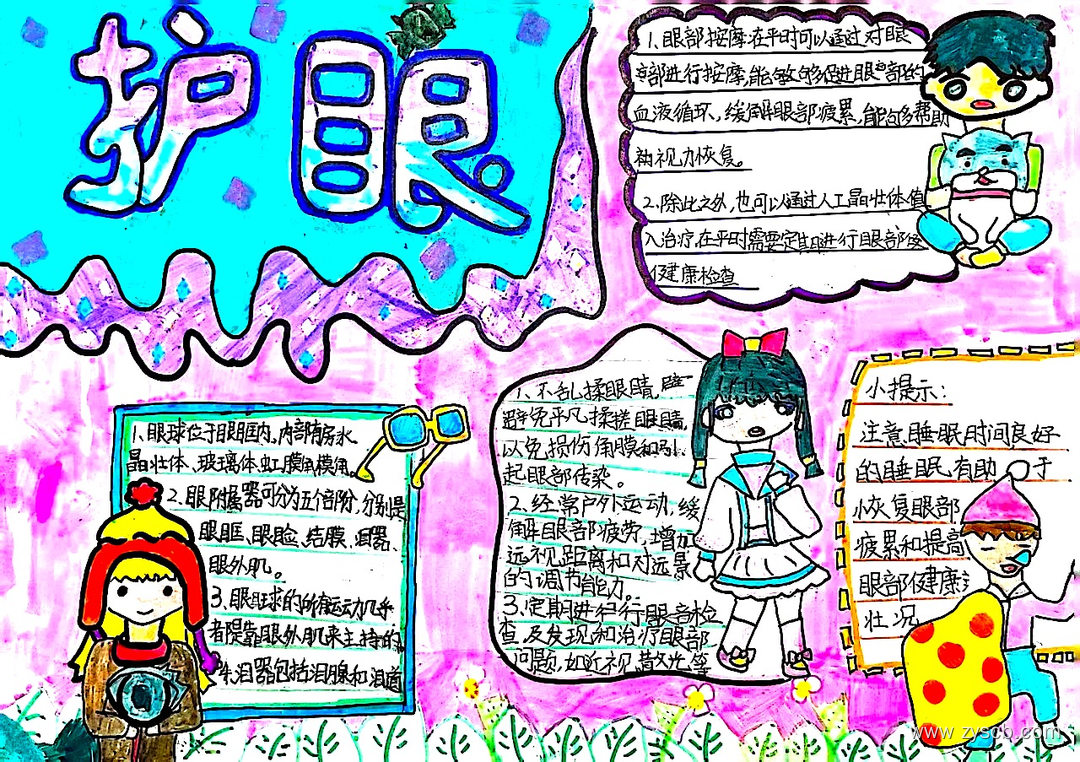 护眼
1、眼部按摩,在平时可以通过对眼
部进行按摩,能够够促进眼部的
血液循环,缓解眼部疲累,能够多帮助
视力恢复。
2、除此之外,也可以通过人工晶壮体值
入治疗,在平时需要定期进行眼部
健康检查
1、眼球位于眼眶内,内部有房水
晶壮体、玻璃体、虹膜角模角
2、眼附属器可分为五个部份,分别是
眼眶、眼睑、结膜、泪器、
眼外肌。
3、眼球的所有运动几乎
都是靠眼外肌来主持的
4、泪器包括泪腺和泪道
1、不乱揉眼睛,
避免平凡揉搓眼睛,
以免损伤角膜和引
起眼部传染。
2、经常户外运动,缓
解眼部疲劳,增加
远视距离和对远景
的调节能力。
3、定期进行眼部检
查,及发现和治疗眼部
问题,如近视、散光、等
小提示:
注意睡眠时间良好
的睡眠,有助于
恢复眼部
疲累和提高
眼部健康
壮况
www.zyscb.com